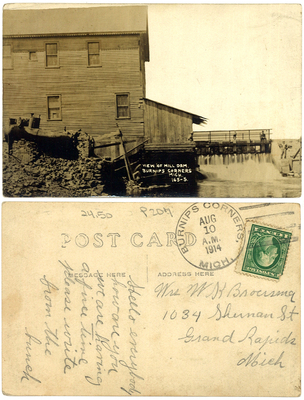 VIEW OF MILL DAM
BURNIPS CORNERS
MICH.
163-S
2450
P2011
POST CARD
MESSAGE HERE
ADDRESS HERE
BURNIPS CORNERS,
AUG
10
A.M.
1914
MICH.
hello everybody
how are you
we are having
a fine time
please write
from the
bunch
1034 Sherman St
Grand Rapids
Mich